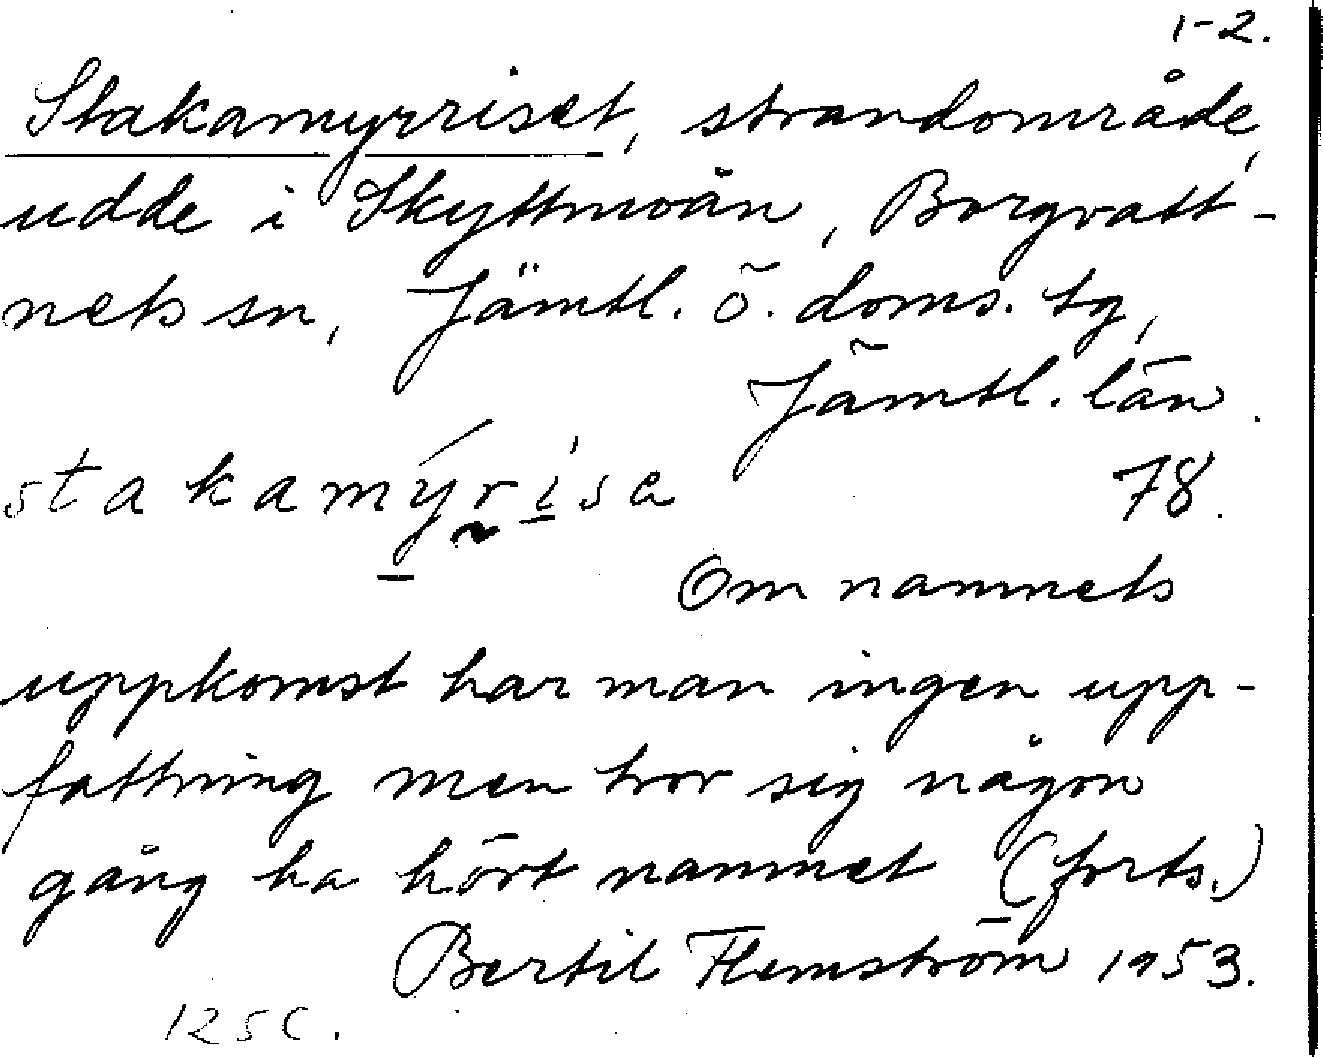 1-2.
Stakamyrriset, strandområde,
udde i Skyttmoån, Borgvatt-
nets sn, Jämtl. ö. doms. tg,
Jämtl. län.
stakamýrisa
78.
Om namnets
uppkomst har man ingen upp-
fattning men tror sig någon
gång ha hört namnet (forts.)
Bertil Flemström 1953.
125C.